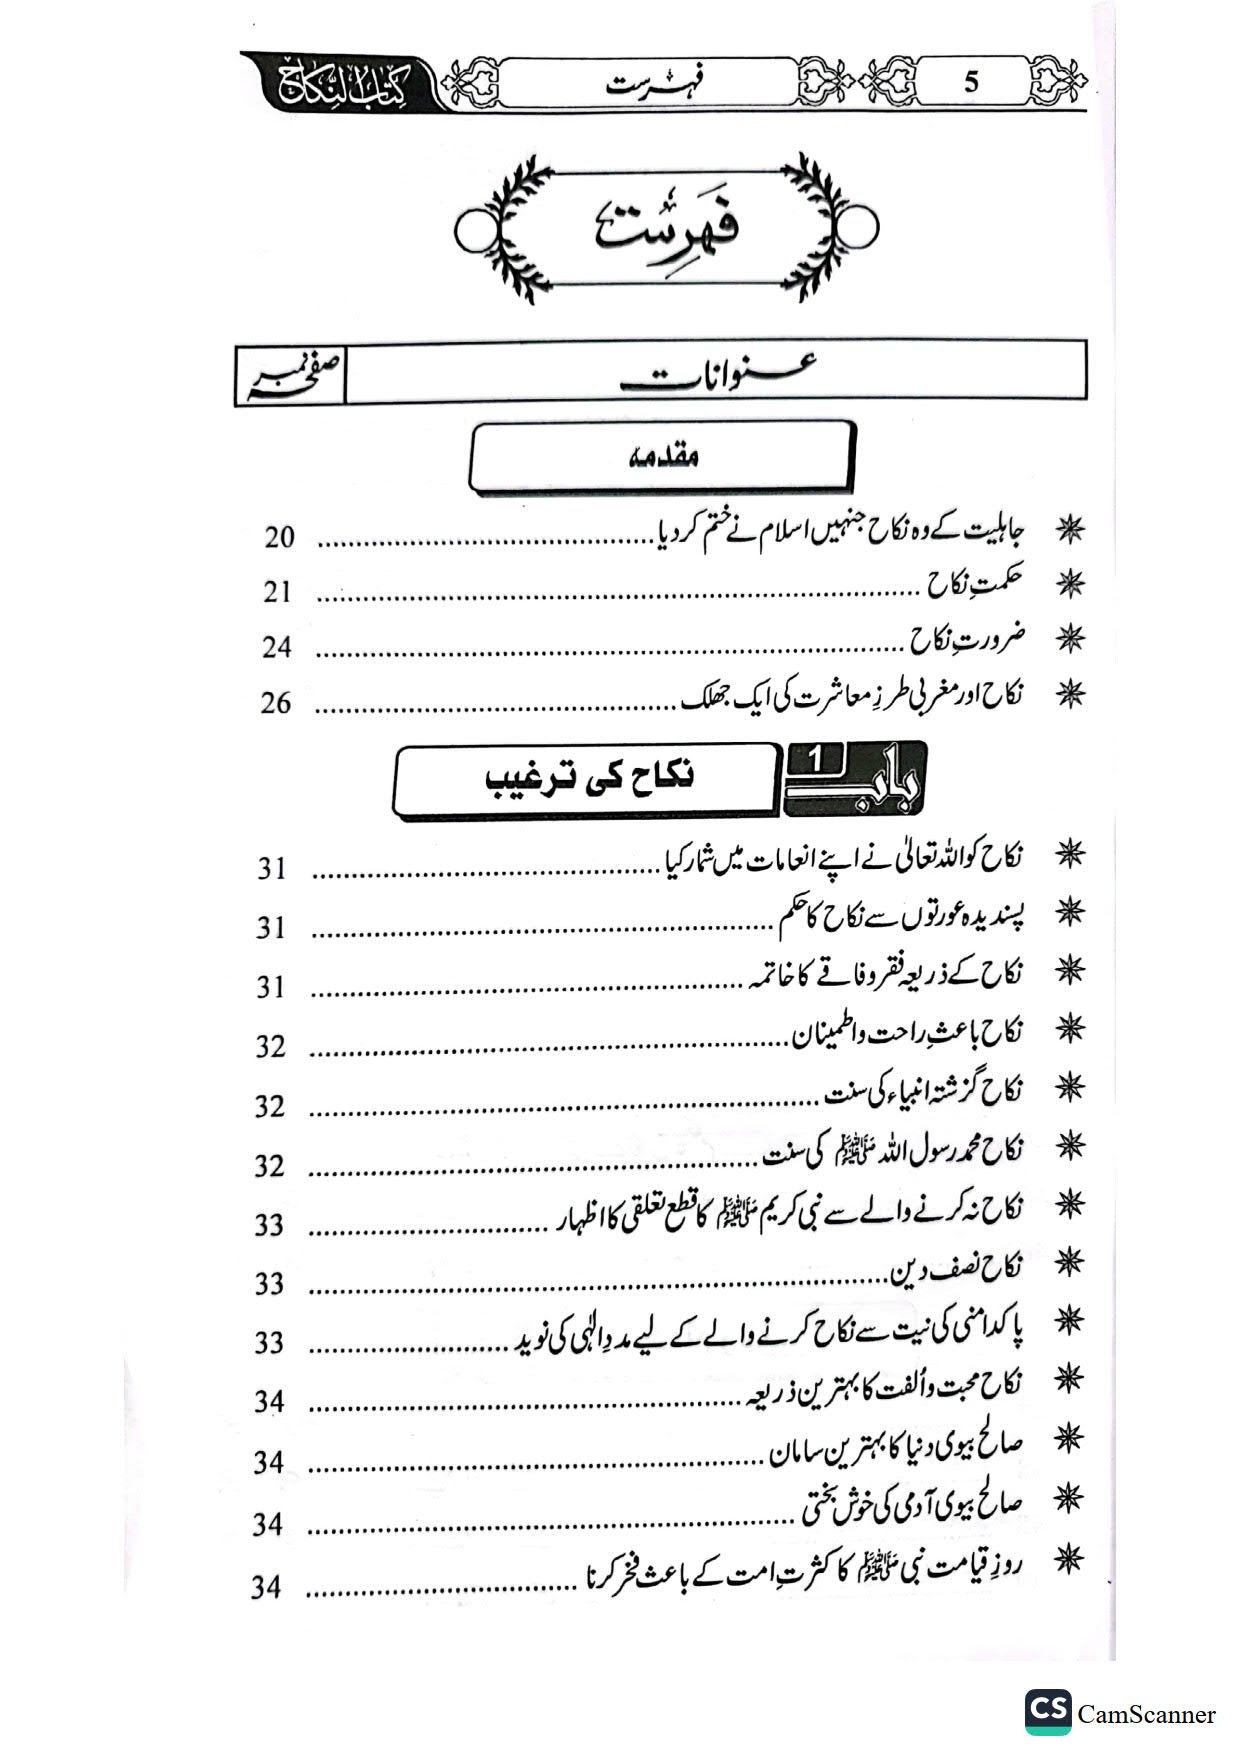 5 فہرست کتابُ النِّکاح
فَہرِست
عنوانات صفحہ نمبر
مقدمہ
جاہلیت کے وہ نکاح جنہیں اسلام نے ختم کردیا 20
حکمتِ نکاح 21
ضرورتِ نکاح 24
نکاح اور مغربی طرزِ معاشرت کی ایک جھلک 26
باب 1 نکاح کی ترغیب
نکاح کو اللہ تعالیٰ نے اپنے انعامات میں شمار کیا 31
پسندیدہ عورتوں سے نکاح کا حکم 31
نکاح کے ذریعہ فقر و فاقے کا خاتمہ 31
نکاح باعثِ راحت و اطمینان 32
نکاح گزشتہ انبیاء کی سنت 32
نکاح محمد رسول اللہ ﷺ کی سنت 32
نکاح نہ کرنے والے سے نبی کریم ﷺ کا قطع تعلقی کا اظہار 33
نکاح نصف دین 33
پاکدامنی کی نیت سے نکاح کرنے والے کے لیے مددِ الٰہی کی نوید 33
نکاح محبت و اُلفت کا بہترین ذریعہ 34
صالح بیوی دنیا کا بہترین سامان 34
صالح بیوی آدمی کی خوش بختی 34
روزِ قیامت نبی ﷺ کا کثرتِ امت کے باعث فخر کرنا 34
CS CamScanner